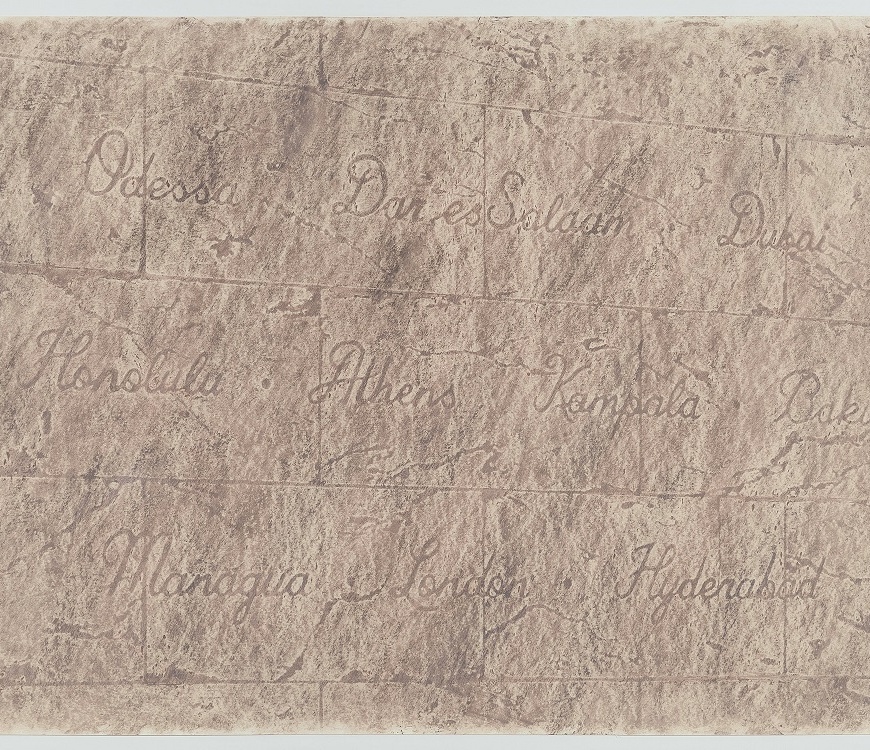 Odessa · Dar es Salaam · Dubai
Honolulu · Athens · Kampala · Baku
Managua · London · Hyderabad